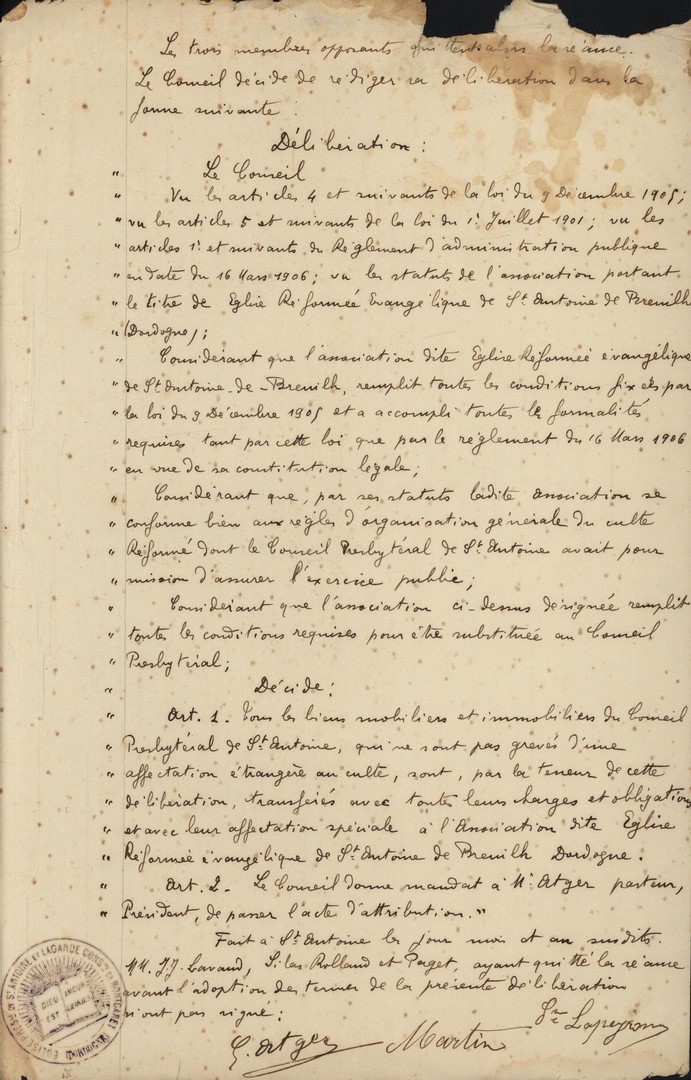 Les trois membres opposants quittent alors la séance.
Le Conseil décide de rédiger sa délibération dans la
forme suivante :
Délibération :
" Le Conseil
" Vu les articles 4 et suivants de la loi du 9 Décembre 1905 ;
" vu les articles 5 et suivants de la loi du 1r Juillet 1901 ; vu les
" articles 1r et suivants du Règlement d'administration publique
" en date du 16 Mars 1906 ; vu les statuts de l'association portant
" le titre de Eglise Réformée Evangélique de St Antoine de Breuilh
" (Dordogne) ;
" Considérant que l'association dite Eglise Réformée évangélique
" de St Antoine-de-Breuilh, remplit toutes les conditions fixées par
" la loi du 9 Décembre 1905 et a accompli toutes les formalités
" requises tant par cette loi que par le règlement du 16 Mars 1906
" en vue de sa constitution légale ;
" Considérant que, par ses statuts ladite association se
" conforme bien aux règles d'organisation générale du culte
" Réformé dont le Conseil Presbytéral de St Antoine avait pour
" mission d'assurer l'exercice public ;
" Considérant que l'association ci-dessus désignée remplit
" toutes les conditions requises pour être substituée au Conseil
" Presbytéral ;
" Décide :
" Art. 1. Tous les biens mobiliers et immobiliers du Conseil
" Presbytéral de St Antoine, qui ne sont pas grevés d'une
" affectation étrangère au culte, sont, par la teneur de cette
" délibération, transférés avec toutes leurs charges et obligations
" et avec leur affectation spéciale à l'Association dite Eglise
" Réformée évangélique de St Antoine de Breuilh Dordogne.
" Art. 2. Le Conseil donne mandat à Mr Atger pasteur,
" Président, de passer l'acte d'attribution."
Fait à St Antoine les jour mois et an susdits.
MM. J.J. Lavaud, Silas Rolland et Paget, ayant quitté la séance
avant l'adoption des termes de la présente délibération
n'ont pas signé :
G. Atger Martin Jn Lapeyronn
EGLISE PRESB. DE ST ANTOINE ET LAGARDE CONS. DE MONTCARET
DIEU EST AMOUR
DORDOGNE